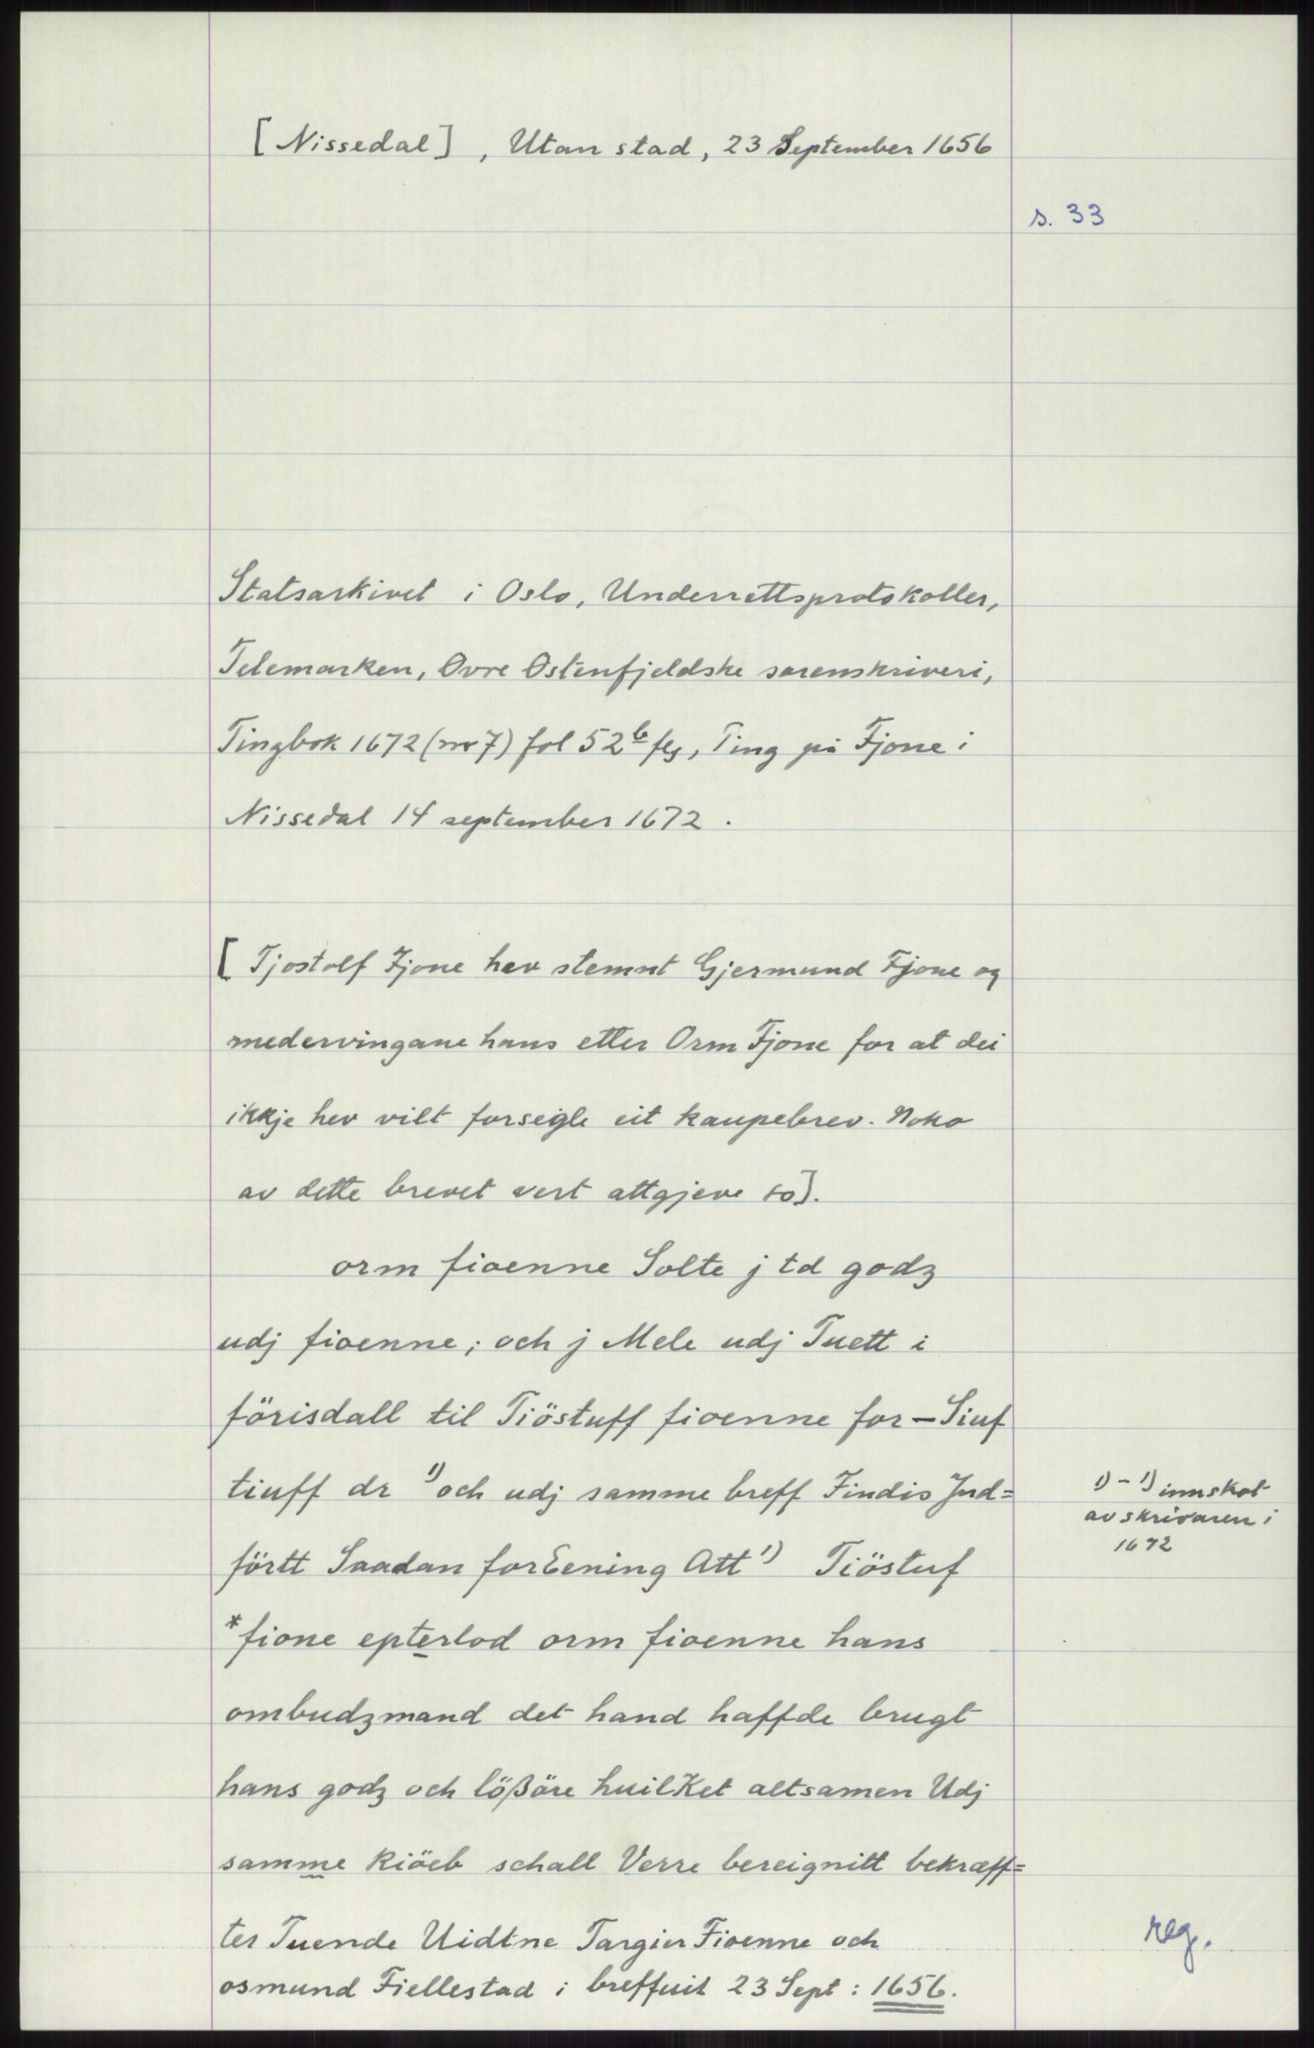 [Nissedal], Utan stad, 23 September 1656
s. 33
Statsarkivet i Oslo, Underrettsprotokoller,
Telemarken, Øvre Østenfjeldske sorenskriveri,
Tingbok 1672 (nr 7) fol 52b flg, Ting på Fjone i
Nissedal 14 september 1672.
[Tjostolf Fjone hev stemnt Gjermund Fjone og
medervingane hans etter Orm Fjone for at dei
ikkje hev vilt forsegle eit kaupebrev. Noko
av dette brevet vert attgjeve so].
orm fioenne Solte j td godz
udj fioenne; och j Mele udj Tuett i
förisdall til Tiöstuff fioenne for – Siuf
tiuff dr 1) och udj samme breff Findis Jnd=
förtt Saadan forEening Att 1) Tiöstuf
*fione epterlod orm fioenne hans
ombudzmand det hand haffde brugt
hans godz och lößöre huilKet altsamen Udj
samme kiöeb schall Verre bereignitt bekræff=
ter Tuende Uidtne Targier Fioenne och
osmund Fiellestad i breffuit 23 Sept: 1656.
1) – 1) innskot
av skrivaren i
1672
reg.